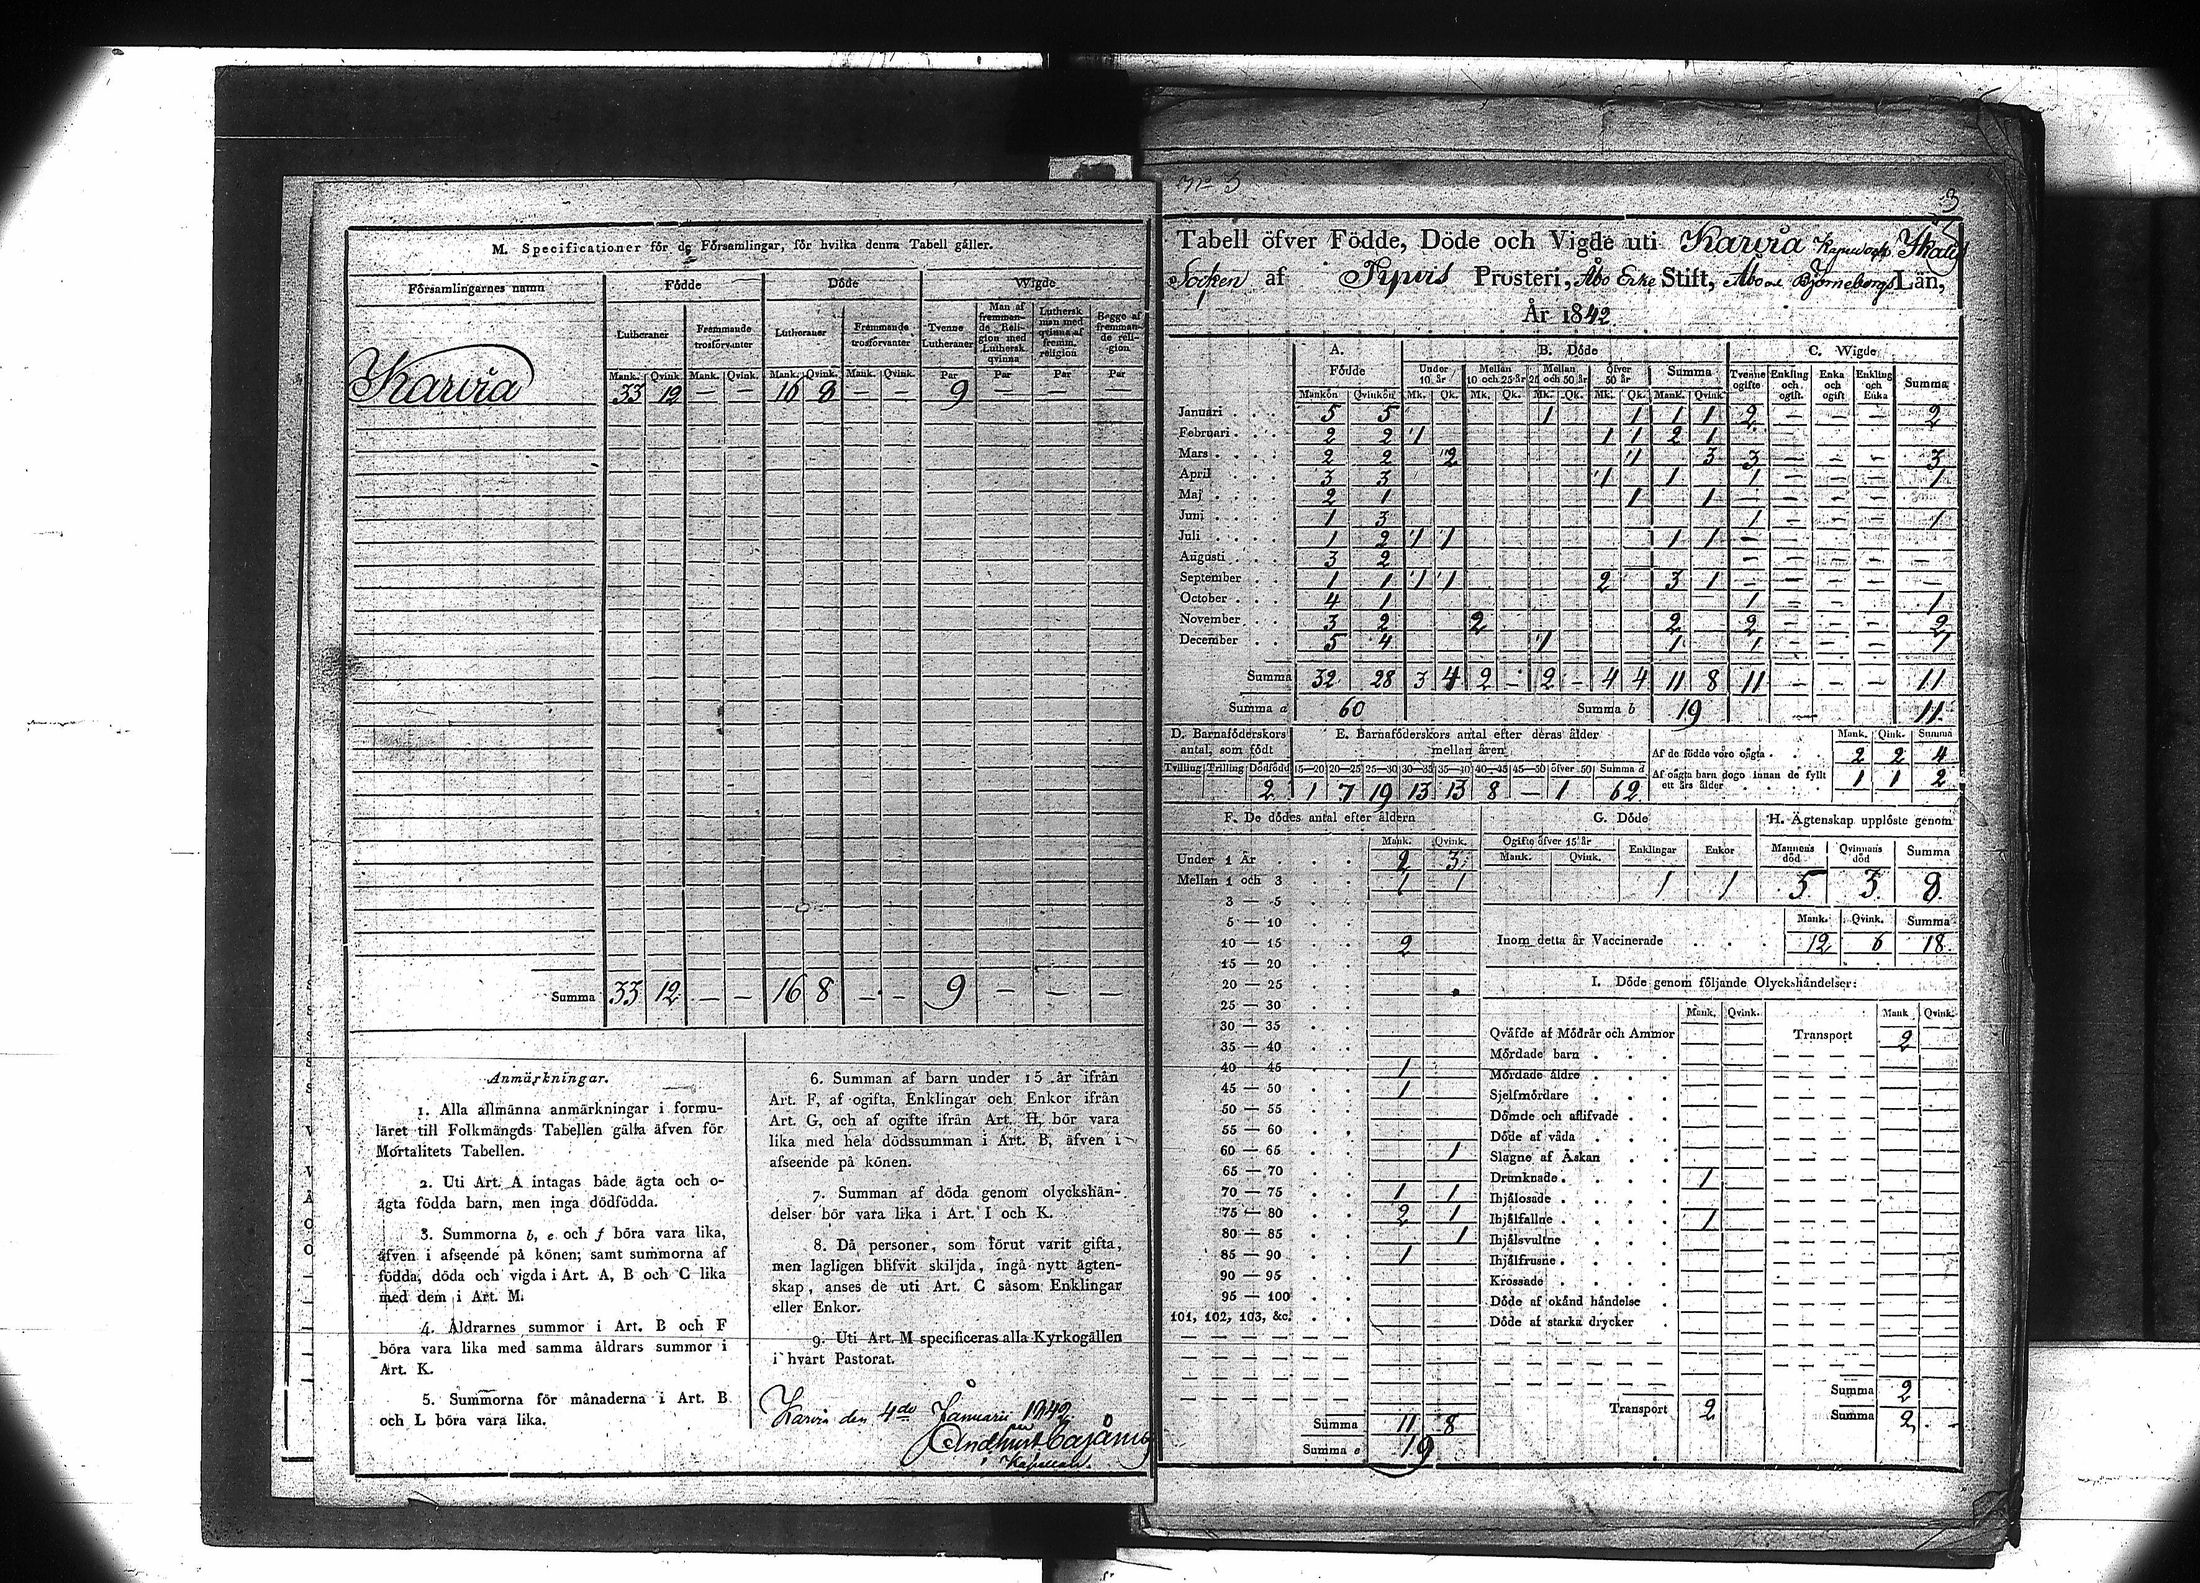 M. Specificationer för de Församlingar, för hvilka denna Tabell gäller.
Församlingarnes namn Födde Döde Wigde
Lutheraner Fremmande trosförvanter Lutheraner Fremmande trosförvanter Tvenne Lutheraner Man af fremmande Religion med Luthersk qvinna Luthersk man med qvinna af fremm. religion Begge af fremmande religion
Mank. Qvink. Mank. Qvink. Mank. Qvink. Mank. Qvink. Par Par Par Par
Karvia 33 12 — — 16 8 — — 9 — — —
Summa 33 12 — — 16 8 — — 9 — — —
Anmärkningar.
1. Alla allmänna anmärkningar i formu-
läret till Folkmängds Tabellen gälla äfven för
Mortalitets Tabellen.
2. Uti Art. A intagas både ägta och o-
ägta födda barn, men inga dödfödda.
3. Summorna b, e och f böra vara lika,
äfven i afseende på könen; samt summorna af
födda, döda och vigda i Art. A, B och C lika
med dem i Art. M.
4. Åldrarnes summor i Art. B och F
böra vara lika med samma åldrars summor i
Art. K.
5. Summorna för månaderna i Art. B
och L böra vara lika.
6. Summan af barn under 15 år ifrån
Art. F, af ogifta, Enklingar och Enkor ifrån
Art. G, och af ogifte ifrån Art. H, bör vara
lika med hela dödssumman i Art. B, äfven i
afseende på könen.
7. Summan af döda genom olyckshän-
delser bör vara lika i Art. I och K.
8. Då personer, som förut varit gifta,
men lagligen blifvit skiljda, ingå nytt ägten-
skap, anses de uti Art. C såsom Enklingar
eller Enkor.
9. Uti Art. M specificeras alla Kyrkogällen
i hvart Pastorat.
Karvia den 4de Januarii 1842
Cajanus
Kapellan.
No 3
3
Tabell öfver Födde, Döde och Vigde uti Karvia Ikalis
Socken af Tyrvis Prusteri, Åbo Erke Stift, Åbo o Björneborgs Län,
År 1842
A. Födde B. Döde C. Wigde
Under 10 år Mellan 10 och 25 år Mellan 25 och 50 år Öfver 50 år Summa Tvenne ogifte Enkling och ogift. Enka och ogift Enkling och Enka Summa
Mankön Qvinkön Mk. Qk. Mk. Qk. Mk. Qk. Mk. Qk. Mank. Qvink
Januari 5 5 1 1 1 1 2 — — — 2
Februari 2 2 1 1 1 2 1 — — — —
Mars 2 2 2 1 3 3 — — — 3
April 3 3 1 1 1 — — — 1
Maj 2 1 1 1 — — —
Juni 1 3 1 — — — 1
Juli 1 2 1 1 1 1 — — — — —
Augusti 3 2 — — — — —
September 1 1 1 1 2 3 1 — — — — —
October 4 1 1 — — — 1
November 3 2 2 2 2 — — — 2
December 5 4 1 1 1 — — — 1
Summa 32 28 3 4 2 — 2 — 4 4 11 8 11 — — — 11
Summa a 60 Summa b 19 — 11
D. Barnaföderskors antal, som födt
Tvilling Trilling Dödfödd
2
E. Barnaföderskors antal efter deras ålder mellan åren
15—20 20—25 25—30 30—35 35—40 40—45 45—50 öfver 50 Summa d
1 7 19 13 13 8 — 1 62
Mank. Qink. Summa
Af de födde voro oägta 2 2 4
Af oägta barn dogo innan de fyllt ett års ålder 1 1 2
F. De dödes antal efter åldern
Mank. Qvink.
Under 1 År 2 3
Mellan 1 och 3 1 1
3 — 5
5 — 10
10 — 15 2
15 — 20
20 — 25
25 — 30
30 — 35
35 — 40
40 — 45 1
45 — 50 1
50 — 55
55 — 60
60 — 65 1
65 — 70
70 — 75 1 1
75 — 80 2 1
80 — 85 1
85 — 90 1
90 — 95
95 — 100
101, 102, 103, &c.
Summa 11 8
Summa e 19
G. Döde
Ogifte öfver 15 år Enklingar Enkor
Mank. Qvink.
1 1
H. Ägtenskap upplöste genom
Mannens död Qvinnans död Summa
5 3 8
Mank. Qvink. Summa
Inom detta år Vaccinerade 12 6 18
I. Döde genom följande Olyckshändelser:
Mank. Qvink. Mank Qvink.
Qväfde af Mödrar och Ammor Transport 2
Mördade barn
Mördade äldre
Sjelfmördare
Dömde och aflifvade
Döde af våda
Slagne af Åskan
Drunknade 1
Ihjälosade
Ihjälfallne 1
Ihjälsvultne
Ihjälfrusne
Krossade
Döde af okänd händelse
Döde af starka drycker
Summa 2
Transport 2 Summa 2 -